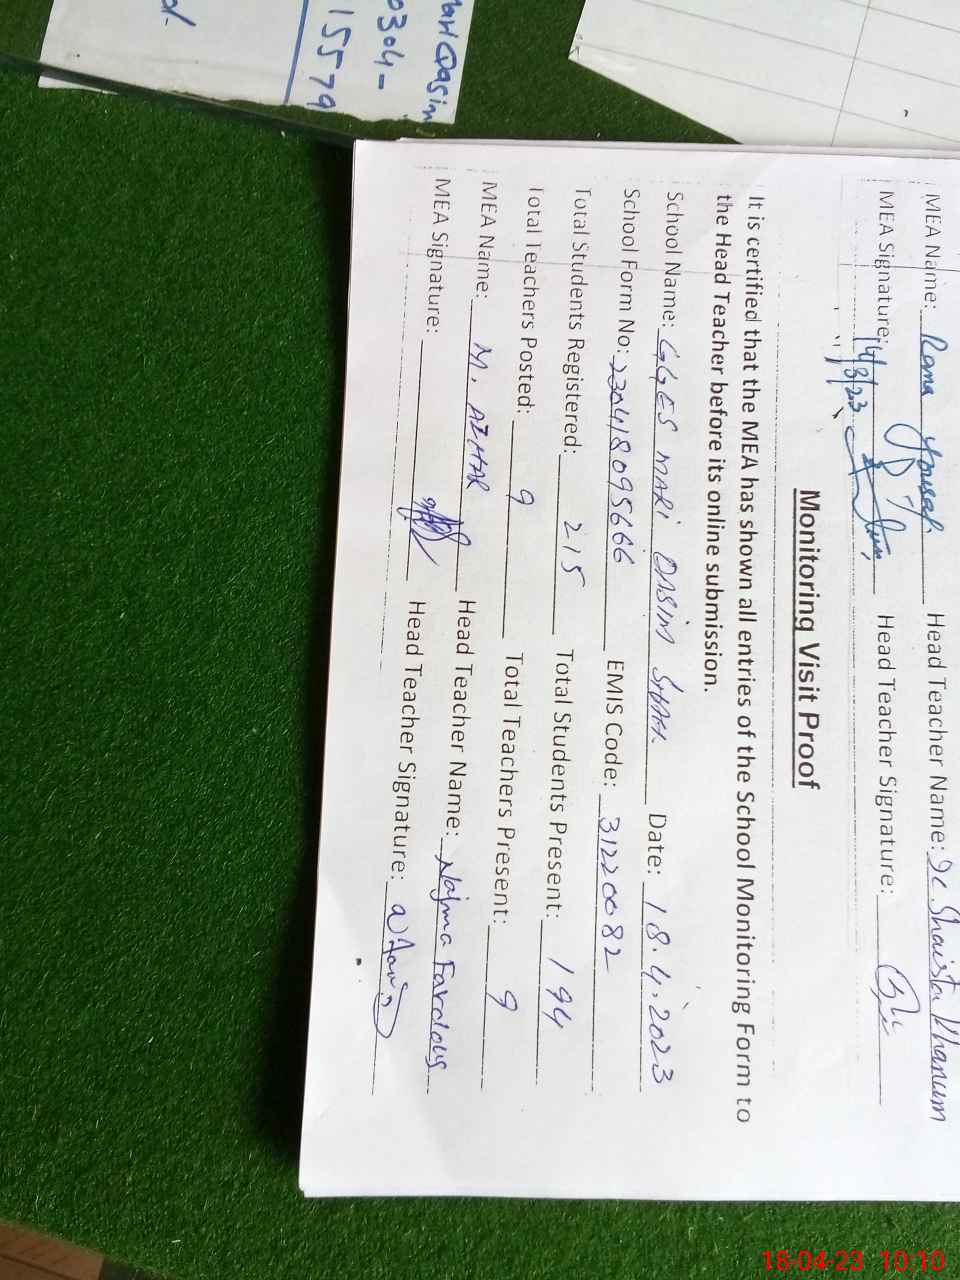 MEA Name: Rana Yousaf Head Teacher Name: Shaista Khanum
MEA Signature: 14/3/23 Head Teacher Signature:
Monitoring Visit Proof
It is certified that the MEA has shown all entries of the School Monitoring Form to
the Head Teacher before its online submission.
School Name: GGES MARI QASIM SHAH Date: 18.4.2023
School Form No: 230418095666 EMIS Code: 31220082
Total Students Registered: 215 Total Students Present: 194
Total Teachers Posted: 9 Total Teachers Present: 9
MEA Name: M. AZHAR Head Teacher Name: Najma Fardous
MEA Signature: Head Teacher Signature:
Qasim
0304-
15579
18-04-23 10:10